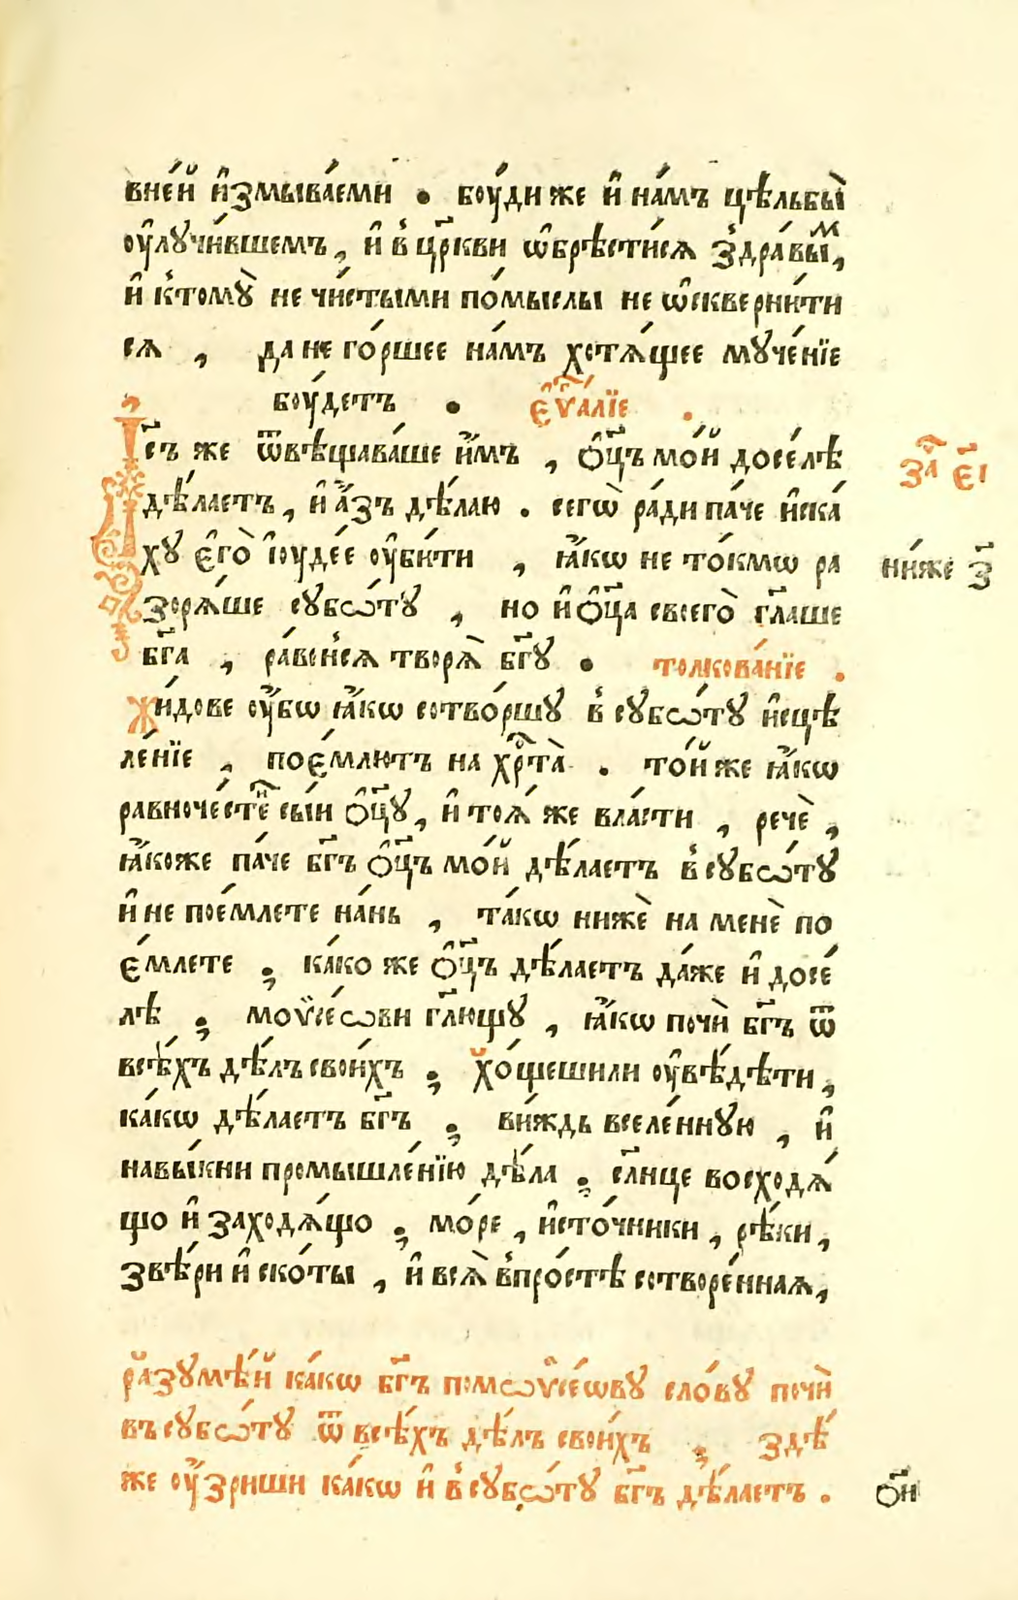 вне́й и҆змыва́еми . бꙋ́ди же и҆ на́мъ цѣльбы̀
ѹ҆лꙋчи́вшемъ , и҆ в҆ цр҃кви ѡ҆брѣ́стисѧ здра́вы́м ,
и҆ к҆томꙋ̀ не чи́стыми по́мыслы не ѡ҆скверни́ти
сѧ , да не го́ршее на́мъ хотѧ́щее мꙋче́нїе
бꙋ́детъ . є҆ѵⷢ҇а́лїе .
І҆с҃ъ же ѿвѣщава́ше и҆̀мъ , ѻ҆ц҃ъ мо́й досе́лѣ
дѣ́лаетъ , и҆ а҆́зъ дѣ́лаю . сегѡ̀ ра́ди па́че и҆ска́
хꙋ є҆го̀ і҆ꙋде́е ѹ҆би́ти , ꙗ҆́кѡ не то́кмѡ ра
зорѧ́ше сꙋбѡ́тꙋ , но и҆ ѻ҆ц҃а своего̀ гл҃аше
бг҃а , ра́венсѧ творѧ̀ бг҃ꙋ . толкова́нїе .
Жи́дове ѹ҆́бѡ ꙗ҆́кѡ сотво́ршꙋ в҆ сꙋбѡ́тꙋ и҆сцѣ
ле́нїе , пое́млютъ на хрⷭ҇та̀ . то́й же ꙗ҆́кѡ
равноче́стенъ сы́и ѻ҆ц҃ꙋ , и҆ тоѧ́ же вла́сти , речѐ ,
ꙗ҆́коже па́че бг҃ъ ѻ҆ц҃ъ мо́й дѣ́лаетъ в҆ сꙋбѡ́тꙋ
и҆ не пое́млете на́нь , та́кѡ нижѐ на менѐ по
е́млете ; ка́ко же ѻ҆ц҃ъ дѣ́лаетъ да́же и҆ досе́
лѣ ; моѵ̈се́ѡви гл҃ющꙋ , ꙗ҆́кѡ почѝ бг҃ъ ѿ
всѣ́хъ дѣ́лъ свои́хъ ; хо́щешили ѹ҆вѣ́дѣти ,
ка́кѡ дѣ́лаетъ бг҃ъ ; ви́ждь вселе́ннꙋю , и҆
навы́кни промышле́нїю дѣ́ла ; сл҃нце восходѧ́
що и҆ заходѧ́що ; мо́ре , и҆сто́чники , рѣ́ки ,
звѣ́ри и҆ ско́ты , и҆ всѧ̀ в҆про́стѣ сотворе́ннаѧ ,
разꙋмѣ́й ка́кѡ бг҃ъ помѡѵ̈се́ѡвꙋ сло́вꙋ почѝ
въ сꙋбѡ́тꙋ ѿ всѣ́хъ дѣ́лъ свои́хъ ; здѣ́
же ѹ҆́зриши ка́кѡ и҆ в҆ сꙋбѡ́тꙋ бг҃ъ дѣ́лаетъ .
за҃ є҃і
ни́же з҃
ѻ҃и